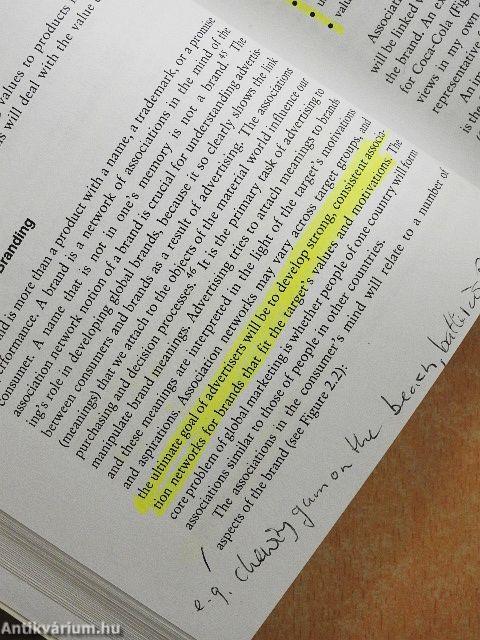 values to products
s will deal with the value
Branding
nd is more than a product with a name, a trademark, or a promise
erformance. A brand is a network of associations in the mind of the
consumer. A name that is not in one's memory is not a brand.45 The
association network notion of a brand is crucial for understanding advertis-
ing's role in developing global brands, because it so clearly shows the link
between consumers and brands as a result of advertising. The associations
(meanings) that we attach to the objects of the material world influence our
purchasing and decision processes.46 It is the primary task of advertising to
manipulate brand meanings. Advertising tries to attach meanings to brands
and these meanings are interpreted in the light of the target's motivations
and aspirations. Association networks may vary across target groups, and
the ultimate goal of advertisers will be to develop strong, consistent associa-
tion networks for brands that fit the target's values and motivations. The
core problem of global marketing is whether people of one country will form
associations similar to those of people in other countries.
The associations in the consumer's mind will relate to a number of
aspects of the brand (see Figure 2.2):
e.g. chewing gum on the beach,
Associatio
will be linked
the brand. An ex
for Coca-Cola (Fig
views in my own
representative
An im
is the
valu
Antikvárium.hu